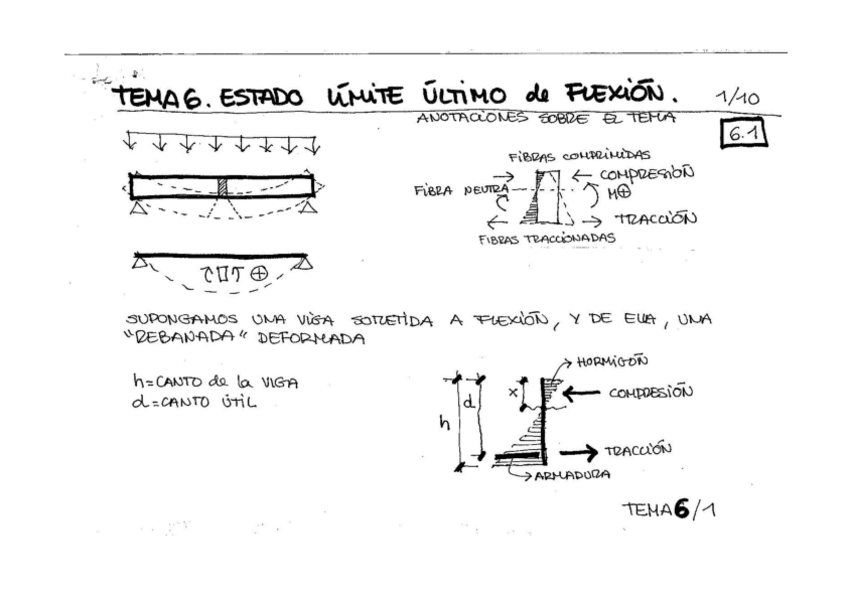 TEMA 6. ESTADO LÍMITE ÚLTIMO de FLEXIÓN. 1/10
ANOTACIONES SOBRE EL TEMA
6.1
FIBRAS COMPRIMIDAS
COMPRESIÓN
FIBRA NEUTRA
M⊕
TRACCIÓN
FIBRAS TRACCIONADAS
⊕
SUPONGAMOS UNA VIGA SOMETIDA A FLEXIÓN, Y DE ELLA, UNA
"REBANADA" DEFORMADA
h=CANTO de la VIGA
d=CANTO ÚTIL
HORMIGÓN
x
COMPRESIÓN
d
h
TRACCIÓN
ARMADURA
TEMA 6/1